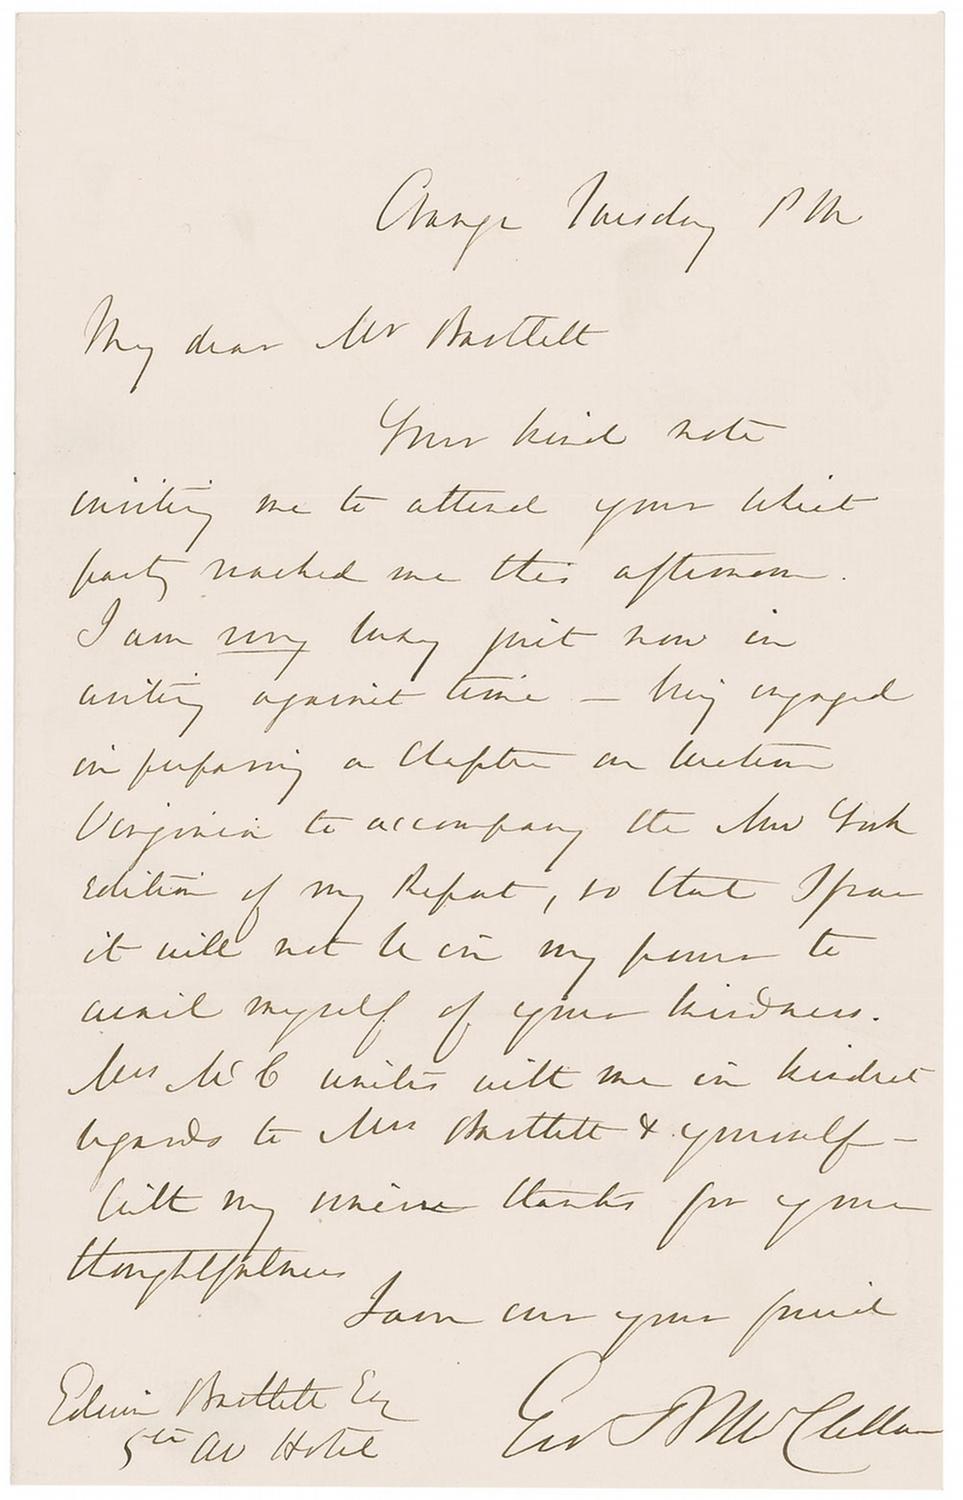 Orange Tuesday PM
My dear Mr Bartlett
Your kind note
inviting me to attend your Whist
party reached me this afternoon.
I am very busy just now in
writing against time – being engaged
in preparing a Chapter on Western
Virginia to accompany the New York
edition of my Report, so that I fear
it will not be in my power to
avail myself of your kindness.
Mrs McC unites with me in kindest
regards to Mrs Bartlett & yourself –
With my sincere thanks for your
thoughtfulness
I am ever your friend
Edwin Bartlett Esq
5th Av Hotel
Geo B McClellan